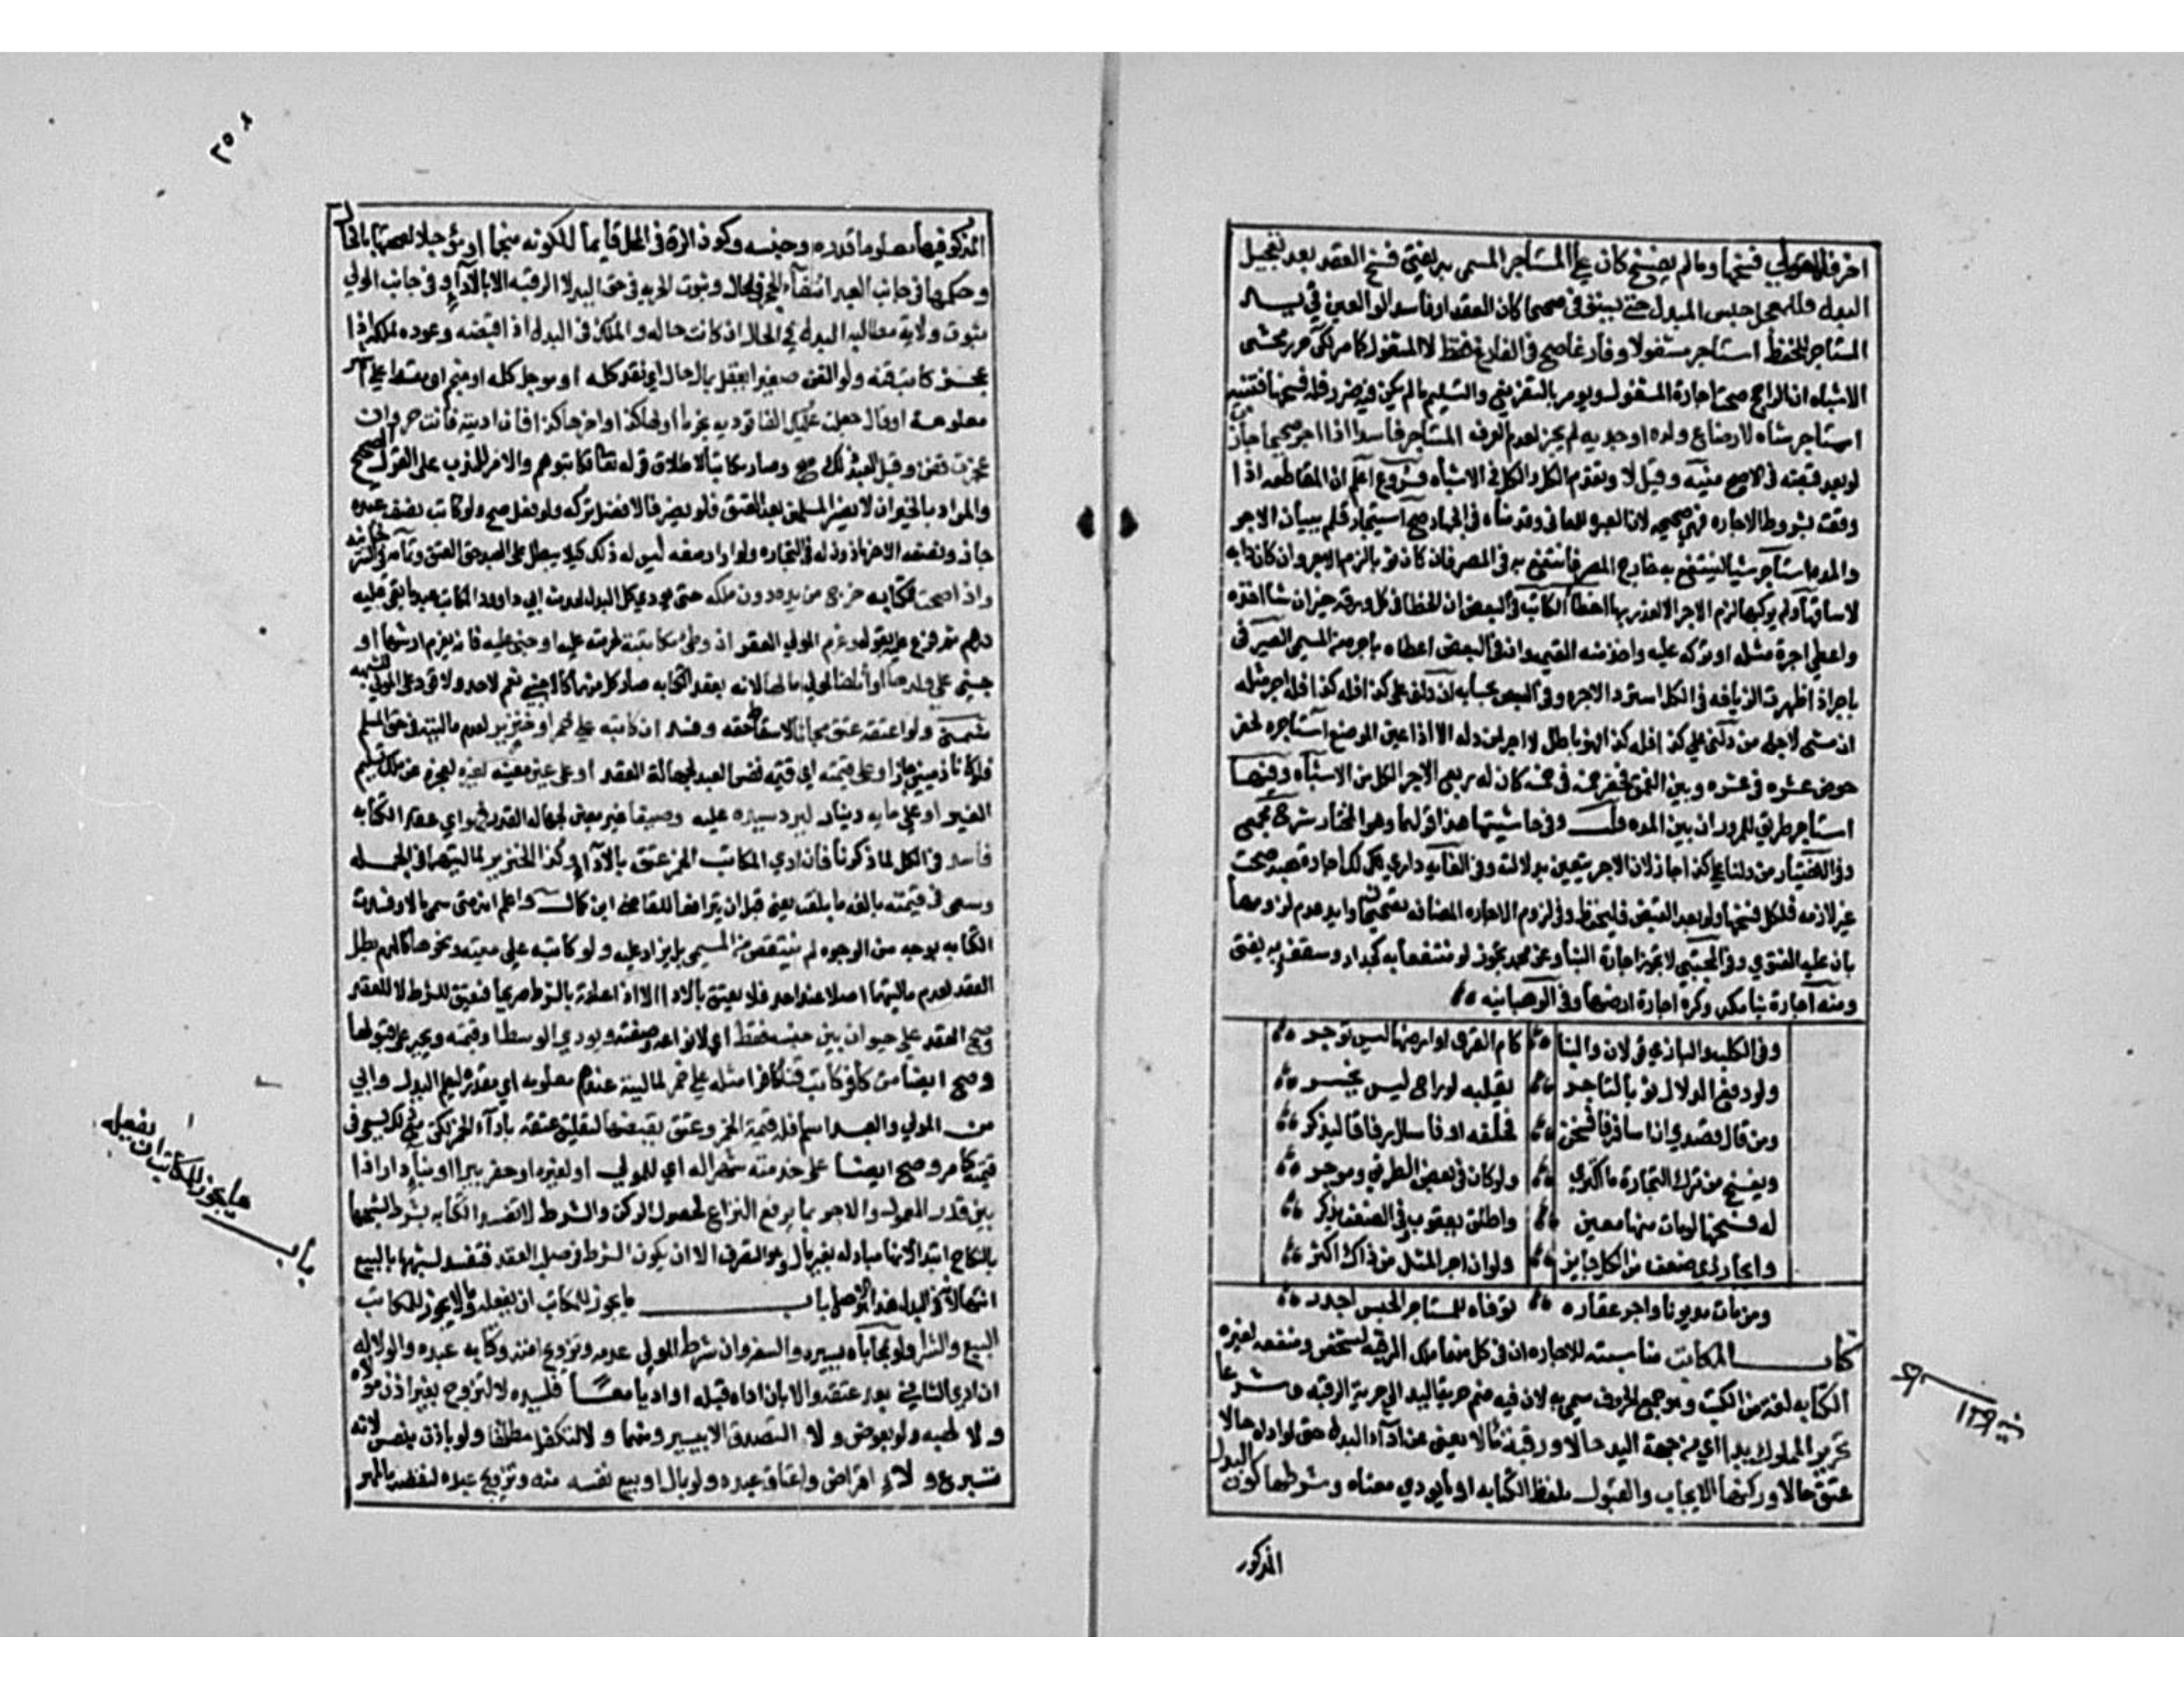 اخر فللمولي فسخها وما لم يفسخ كان علي المستاجر المسمي به يفتي فسخ العقد بعد تعجيل
البدل فللمعجل حبس المبدل حتي يستوفي صحيحا كان العقد او فاسدا لو العين في يد
المستاجر فليحفظ استاجر مشغولا وفارغا صح في الفارغ فقط لا المشغول كما مر لكن حرر محشي
الاشباه ان الراجح صحة اجارة المشغول ويومر بالتفريغ والتسليم ما لم يكن فيه ضرر فله فسخها فتنبه
استاجر شاه لارضاع ولده او جديه لم يجز لعدم العرف المستاجر فاسدا اذا اجر صحيحا جاز
لو بعد قبضه في الاصح منيه وقيل لا وتقدم الكل والكل في الاشباه فروع اعلم ان المقاطعه اذا
وقعت بشروط الاجاره فهي صحيحه لان العبره للمعاني وقدمناه في الجهاد صح استيجار قلم ببيان الاجر
والمده استاجر شيا لينتفع به خارج المصر فانتفع به في المصر فان كان ثوبا لزم الاجر وان كان دابه
لا ساقها ولم يركبها لزم الاجر الا لعذر بها اخطا الكاتب في البعض ان الخطا في كل ورقه خير ان شا اخذه
واعطي اجرة مثله او تركه عليه واخذ منه القيمه وان في البعض اعطاه باجره من المسمي الصيرفي
باجر اذا ظهرت الزيافه في الكل استرد الاجره وفي البعض بحسابه ان دلني علي كذا فله كذا فله اجر مثله
ان مشي لاجله من دلني علي كذا فله كذا فهو باطل ولا اجر لمن دله الا اذا عين الموضع استاجره لحفر
حوض عشره في عشره وبين العمق فحفر خمسه في خمسه كان له ربع الاجر الكل من الاشباه وفيها
استاجر طريق للمرور ان بين المده وفي حاشيتها هذا قولهما وهو المختار شرح مجمع
وفي الاختيار من دلنا علي كذا جاز لان الاجر يتعين بدلالته وفي الغايه داري لك اجارة هبه صحت
غير لازمه فلكل فسخها ولو بعد القبض فليحفظ وفي لزوم الاجاره المضافه تصحيحان وايد عدم لزومها
بان عليه الفتوي وفي المجتبي لا تجوز اجارة البنا وعن محمد تجوز لو منتفعا به كجدار وسقف به يفتي
ومنه اجارة بنا مكه وكره اجارة ارضها وفي الوهبانيه
وفي الكلب والبازي قولان والبنا كام القري او ارضها ليس توجر
ولو دفع الدلال ثوبا لتاجر يقلبه لو راح ليس يخسر
ومن قال قصدي ان اسافر فافسخن فحلفه او فاسال رفاقا ليذكر
ويفسخ من ترك التجارة ما اكتري ولو كان في بعض الطريق وموجر
له فسخها لو مات منها معين واطلق يعقوب وفي الضعف يذكر
وايجار ذي ضعف من الكل جايز ولو ان اجر المثل من ذاك اكثر
ومن مات مديونا واجر عقاره توفاه للمستاجر الحبس اجدر
كتاب المكاتب مناسبته للاجاره ان في كل منهما ملك الرقبه لشخص ومنفعه لغيره
الكتابه لغة من الكتب وهو جمع الحروف سمي به لان فيه ضم حرية اليد الي حرية الرقبه وشرعا
تحرير المملوك يدا اي من جهة اليد حالا ورقبة مالا يعني عند اداء البدل حتي لو اداه حالا
عتق حالا وركنها الايجاب والقبول بلفظ الكتابه او ما يودي معناه وشرطها كون البدل
المذكور
المذكور فيها معلوما قدره وجنسه وكون الرق في المحل قايما لا كونه منجما او موجلا لصحتها بالحال
وحكمها في جانب العبد انتفاء الحجر في الحال وثبوت الحريه في حق اليد لا الرقبه الا بالاداء وفي جانب المولي
ثبوت ولاية مطالبه البدل في الحال ان كانت حاله والملك في البدل اذا قبضه وعوده لملكه اذا
عجز كاتب قنه ولو القن صغيرا يعقل بمال حال اي نقد كله او موجل كله او منجم اي مقسط علي اشهر
معلومة او قال جعلت عليك الفا توديه نجوما اولها كذا واخرها كذا فان اديته فانت حر وان
عجزت فقن وقبل العبد ذلك صح وصار مكاتبا لاطلاق قوله تعالي فكاتبوهم والامر للندب علي القول الصحيح
والمراد بالخير ان لا يضر المسلمين بعد العتق فلو يضر فالافضل تركه ولو فعل صح ولو كاتب نصف عبده
جاز ونصفه الاخر ماذون له في التجاره ولو اراد منعه ليس له ذلك كيلا يبطل علي العبد حق العتق وتمامه في التتر خانيه
واذا صحت الكتابه خرج من يده دون ملكه حتي يودي كل البدل لحديث ابي داود المكاتب عبد ما بقي عليه
درهم ثم فرع عليه بقوله وغرم المولي العقر ان وطي مكاتبته لحرمته عليه او جني عليها فانه يغرم ارشها او
جني علي ولدها او اتلف المولي مالها لانه بعقد الكتابه صار كل منهما كالاجنبي نعم لا حد ولا قود علي المولي للشبهه
شمني ولو اعتقه عتق مجانا لاسقاط حقه وفسد ان كاتبه علي خمر او خنزير لعدم ماليته في حق المسلم
فلو كانا ذميين جاز او علي قيمته اي قيمة نفس العبد لجهالة القدر او علي عين معينه لغيره لعجزه عن تسليم ملك
الغير او علي مايه دينار ليرد سيده عليه وصيفا غير معين لجهالة القدر فهو اي عقد الكتابه
فاسد في الكل لما ذكرنا فان ادي المكاتب الخمر عتق بالاداء وكذا الخنزير لماليتهما في الجمله
وسعي في قيمته بالغه ما بلغت يعني قبل ان يترافعا للقاضي ابن كمال واعلم انه متي سمي مالا وفسدت
الكتابه بوجه من الوجوه لم تنتقص من المسمي بل يزاد عليه ولو كاتبه علي ميته ونحوها كالدم بطل
العقد لعدم ماليتهما اصلا عند احد فلا يعتق بالاداء الا اذا علقه بالشرط صريحا فيعتق للشرط لا للعقد
وصح العقد علي حيوان بين جنسه فقط اي لا نوعه وصفته ويودي الوسط او قيمته ويجبر علي قبولها
وصح ايضا من كافر كاتب قنا كافرا مثله علي خمر لماليته عندهم معلومه اي مقدره ليعلم البدل واي
من المولي والعبد اسلم فله قيمة الخمر وعتق بقبضها لتعليق عتقه باداء الخمر لكن مع ذلك يسعي في
قيمته كما مر وصح ايضا علي خدمته شهرا له اي للمولي او لغيره او حفر بير او بناء دار اذا
بين قدر المعمول والاجر بما يرفع النزاع لحصول الركن والشرط لا تفسد الكتابه بشرط لشبهها
بالنكاح ابتدا لانها مبادله بغير مال وهو التصرف الا ان يكون الشرط في صلب العقد فتفسد لشبهها بالبيع
انتها لانه في البدل هذا هو الاصل باب ما يجوز للمكاتب ان يفعله وما لا يجوز للمكاتب
البيع والشرا ولو بمحاباه يسيره والسفر وان شرط المولي عدمه وتزويج امته وكتابه عبده والولا له
ان ادي الثاني بعد عتقه والا بان اداه قبله او اديا معا فلسيده لا التزوج بغير اذن مولاه
ولا الهبه ولو بعوض ولا التصدق الا بيسير منهما ولا التكفل مطلقا ولو باذن بنفس لانه
تبرع ولا الاقراض واعتاق عبده ولو بمال وبيع نفسه منه وتزويج عبده لنقصه بالمهر
باب
ما يجوز للمكاتب ان يفعله